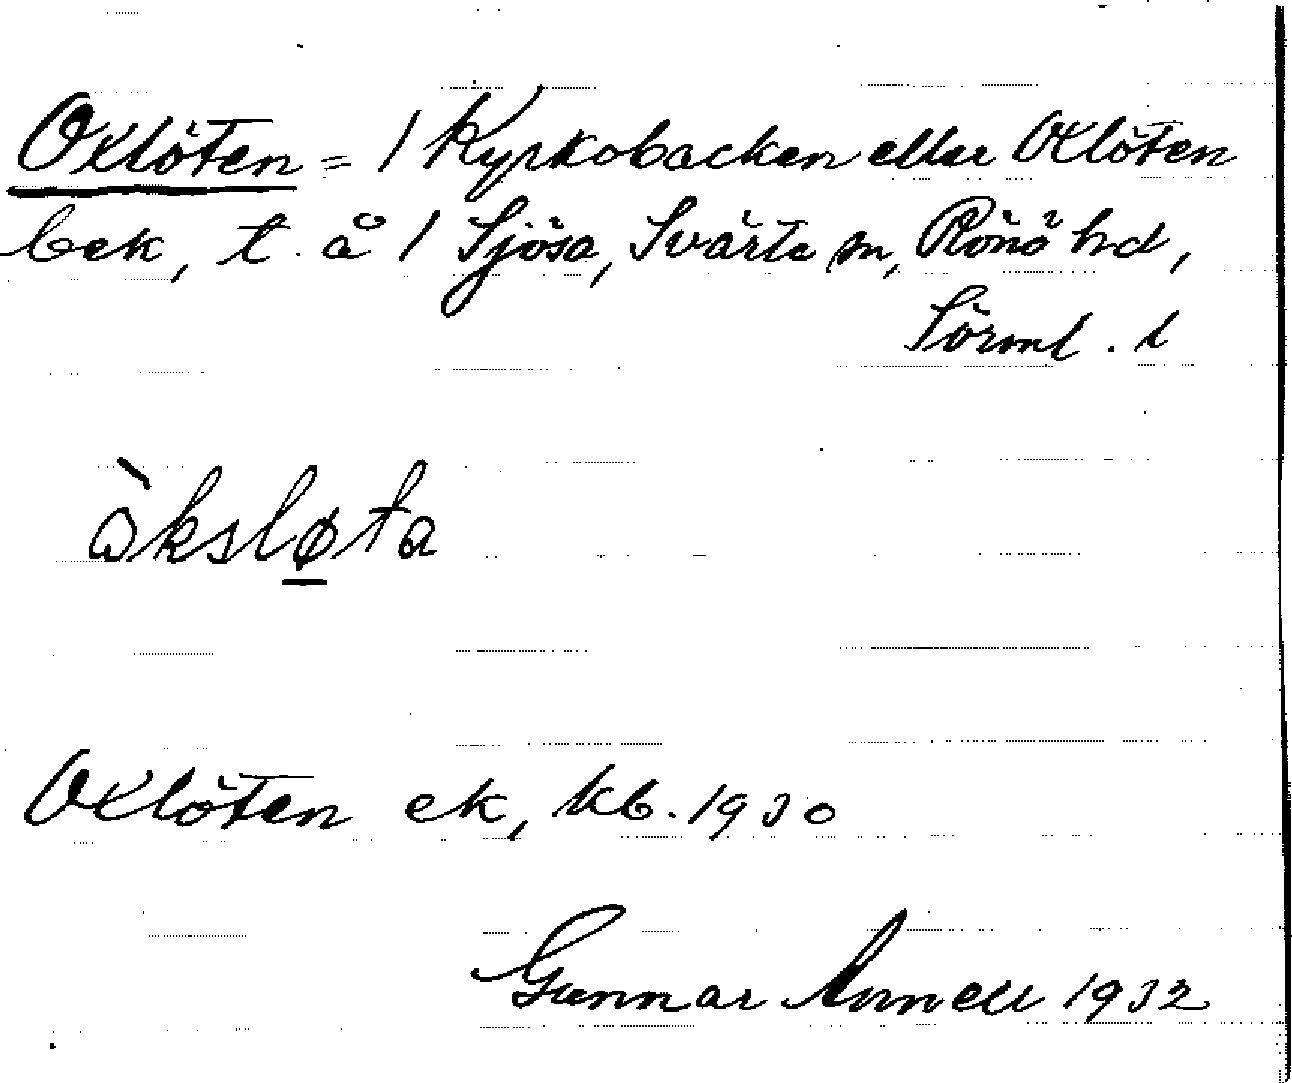 Oxlöten = / Kyrkobacken eller Oxlöten
bek, t. å / Sjösa, Svärta sn, Rönö hd,
Sörml. l
òksløta
Oxlöten ek, kb. 1930
Gunnar Annell 1932